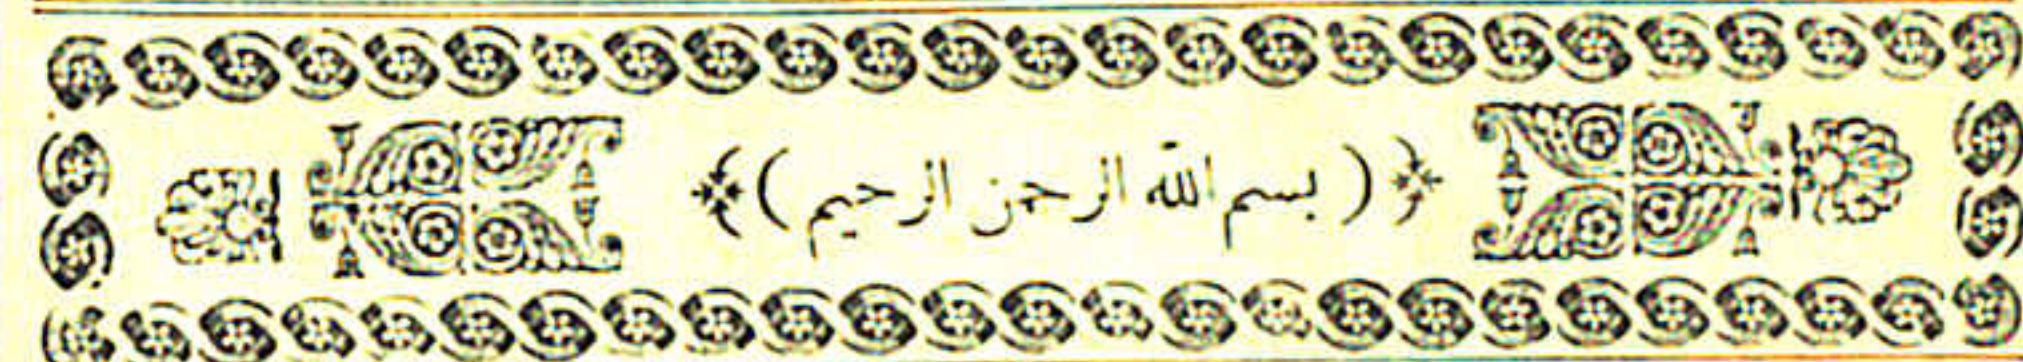 ﴿( بسم الله الرحمن الرحيم )﴾